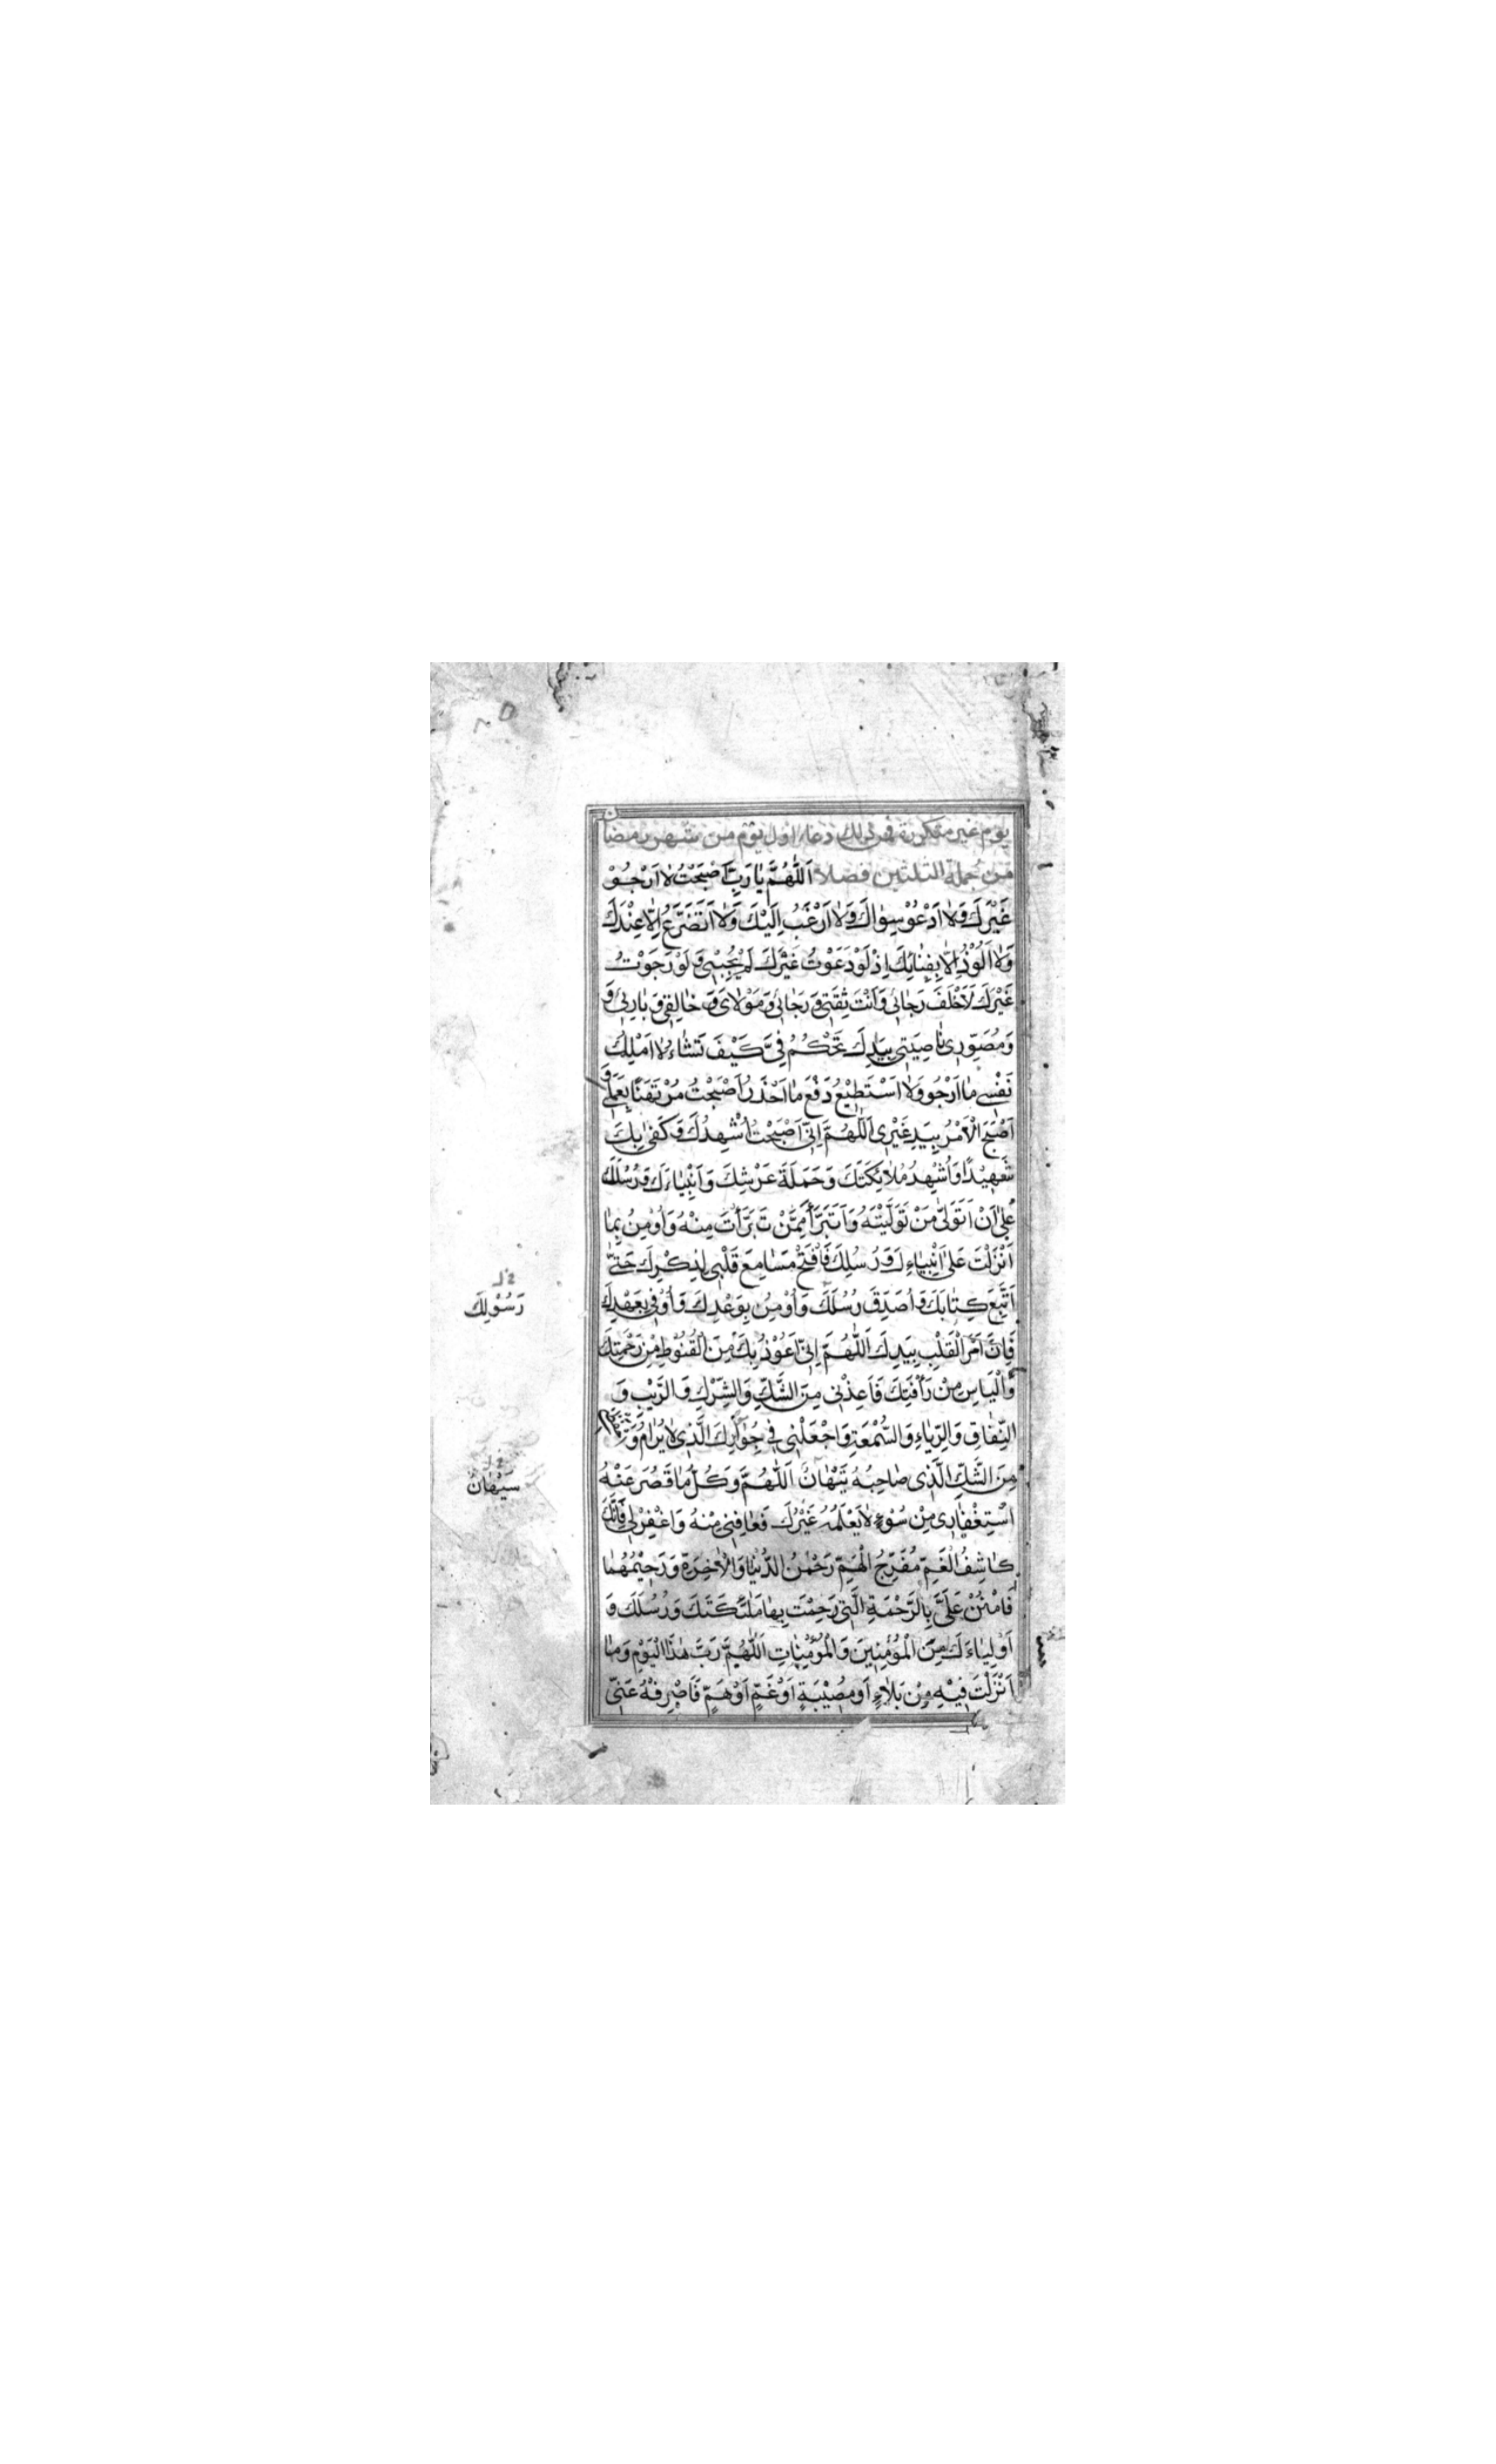 يوم غير متكررة فمن ذلك دعاء اول يوم من شهر رمضا
ن
من جملة الثلثين فصلا اَللّٰهُمَّ يٰا رَبِّ اَصْبَحْتُ لٰا اَرْجُوْ
غَيْرَكَ وَلٰا اَدْعُوْ سِوٰاكَ وَلٰا اَرْغَبُ اِلَيْكَ وَلٰا اَتَضَرَّعُ اِلّٰا عِنْدَكَ
وَلٰا اَلُوْذُ اِلّٰا بِفِنٰائِكَ اِذْ لَوْ دَعَوْتُ غَيْرَكَ لَمْ يُجِبْنِيْ وَلَوْ رَجَوْتُ
غَيْرَكَ لَاَخْلَفَ رَجٰائِيْ وَاَنْتَ ثِقَتِيْ وَرَجٰائِيْ وَمَوْلٰايَ وَ خٰالِقِيْ وَ بٰارِئِيْ وَ
وَمُصَوِّرِيْ نٰاصِيَتِيْ بِيَدِكَ تَحْكُمُ فِيَّ كَيْفَ تَشٰاءُ لٰا اَمْلِكُ
نَفْسِيْ مٰا اَرْجُو وَلٰا اَسْتَطِيْعُ دَفْعَ مٰا اَحْذَرُ اَصْبَحْتُ مُرْتَهَنًا بِعَمَلِيْ وَ
اَصْبَحَ الْاَمْرُ بِيَدِ غَيْرِيْ اَللّٰهُمَّ اِنِّيْ اَصْبَحْتُ اُشْهِدُكَ وَكَفٰى بِكَ
شَهِيْدًا وَاُشْهِدُ مَلٰائِكَتَكَ وَحَمَلَةَ عَرْشِكَ وَاَنْبِيٰاءَكَ وَرُسُلَكَ
عَلٰى اَنْ اَتَوَلّٰى مَنْ تَوَلَّيْتَهُ وَاَتَبَرَّأَ مِمَّنْ تَبَرَّأْتَ مِنْهُ وَاُوْمِنُ بِمٰا
اَنْزَلْتَ عَلٰى اَنْبِيٰاءِكَ وَرُسُلِكَ فَافْتَحْ مَسٰامِعَ قَلْبِيْ لِذِكْرِكَ حَتّٰى
اَتَّبِعَ كِتٰابَكَ وَاُصَدِّقَ رُسُلَكَ وَاُوْمِنُ بِوَعْدِكَ وَاُوْفِيَ بِعَهْدِكَ
رَسُوْلِكَ
فَاِنَّ اَمْرَ الْقَلْبِ بِيَدِكَ اَللّٰهُمَّ اِنِّيْ اَعُوْذُ بِكَ مِنَ الْقُنُوْطِ مِنْ رَحْمَتِكَ
وَالْيَاسِ مِنْ رَأْفَتِكَ فَاَعِذْنِيْ مِنَ الشَّكِّ وَالشِّرْكِ وَالرَّيْبِ وَ
النِّفٰاقِ وَالرِّيٰاءِ وَالسُّمْعَةِ وَاجْعَلْنِيْ فِيْ جِوٰارِكَ الَّذِيْ لٰا يُرٰامُ وَ
مِنَ الشَّكِّ الَّذِيْ صٰاحِبُهُ يَتَهٰانُ اَللّٰهُمَّ وَكُلَّمٰا قَصُرَ عَنْهُ
اسْتِغْفٰارِيْ مِنْ سُوْءٍ لٰا يَعْلَمُهُ غَيْرُكَ فَعٰافِنِيْ مِنْهُ وَاغْفِرْ لِيْ فَاِنَّكَ
كٰاشِفُ الْغَمِّ مُفَرِّجُ الْهَمِّ رَحْمٰنُ الدُّنْيٰا وَالْاٰخِرَةِ وَرَحِيْمُهُمٰا
فَامْنُنْ عَلَيَّ بِالرَّحْمَةِ الَّتِيْ رَحِمْتَ بِهٰا مَلٰئِكَتَكَ وَرُسُلَكَ وَ
اَوْلِيٰاءَكَ مِنَ الْمُؤْمِنِيْنَ وَالْمُؤْمِنٰاتِ اَللّٰهُمَّ رَبَّ هٰذَا الْيَوْمِ وَمٰا
اَنْزَلْتَ فِيْهِ مِنْ بَلٰاءٍ اَوْ مُصِيْبَةٍ اَوْ غَمٍّ اَوْ هَمٍّ فَاصْرِفْهُ عَنِّيْ